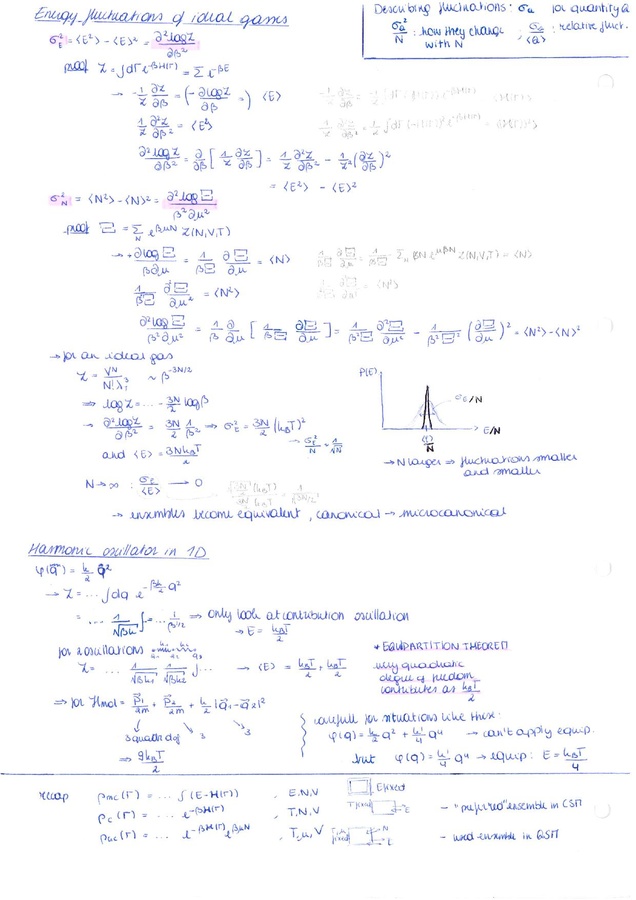 Energy fluctuations of ideal gases
Describing fluctuations: σ_a for quantity a
σ_a²/N : how they change with N , σ_a/⟨a⟩ : relative fluct.
σ_E² = ⟨E²⟩ - ⟨E⟩² = ∂²logZ/∂β²
proof Z = ∫dΓ e^{-βH(Γ)} = Σ e^{-βE}
→ -1/Z ∂Z/∂β = (-∂logZ/∂β =) ⟨E⟩
1/Z ∂²Z/∂β² = ⟨E²⟩
∂²logZ/∂β² = ∂/∂β [1/Z ∂Z/∂β] = 1/Z ∂²Z/∂β² - 1/Z² (∂Z/∂β)²
= ⟨E²⟩ - ⟨E⟩²
σ_N² = ⟨N²⟩ - ⟨N⟩² = ∂²logΞ/β²∂μ²
proof Ξ = Σ_N e^{βμN} Z(N,V,T)
→ ∂logΞ/β∂μ = 1/βΞ ∂Ξ/∂μ = ⟨N⟩
1/β²Ξ ∂²Ξ/∂μ² = ⟨N²⟩
∂²logΞ/β²∂μ² = 1/β ∂/∂μ [1/βΞ ∂Ξ/∂μ] = 1/β²Ξ ∂²Ξ/∂μ² - 1/β²Ξ² (∂Ξ/∂μ)² = ⟨N²⟩ - ⟨N⟩²
→ for an ideal gas
Z = V^N/N!λ^3 ~ β^{-3N/2}
⇒ logZ = ... - 3N/2 logβ
→ ∂²logZ/∂β² = 3N/2 1/β² ⇒ σ_E² = 3N/2 (k_BT)²
→ σ_E²/N = 1/√N
and ⟨E⟩ = 3Nk_BT/2
P(E)
σ_E/N
E/N
⟨E⟩/N
→ N larger ⇒ fluctuations smaller
and smaller
N→∞ : σ_E/⟨E⟩ → 0
→ ensembles become equivalent, canonical → microcanonical
Harmonic oscillator in 1D
φ(q) = k/2 q²
→ Z = ... ∫dq e^{-βk/2 q²}
= ... 1/√βk ∫... 1/β^{1/2} ⇒ only look at contribution oscillation
→ E = k_BT/2
for 2 oscillations
Z = ... 1/√βk₁ 1/√βk₂ ∫... → ⟨E⟩ = k_BT/2 + k_BT/2
* EQUIPARTITION THEOREM
every quadratic
degree of freedom
contributes as k_BT/2
⇒ for Hmol = p₁²/2m + p₂²/2m + k/2 |q₁ - q₂|²
3 quadr dof 3 3
⇒ 9k_BT/2
carefull for situations like these:
φ(q) = k/2 q² + k'/4 q⁴ → can't apply equip.
but φ(q) = k'/4 q⁴ → equip: E = k_BT/4
recap ρmc(Γ) = ... ∫(E-H(Γ)) , E,N,V E fixed
ρc(Γ) = ... e^{-βH(Γ)} , T,N,V T fixed E - "preferred" ensemble in CSM
ρgc(Γ) = ... e^{-βH(Γ)} e^{βμN} , T,μ,V T,μ fixed N E - used ensemble in QSM